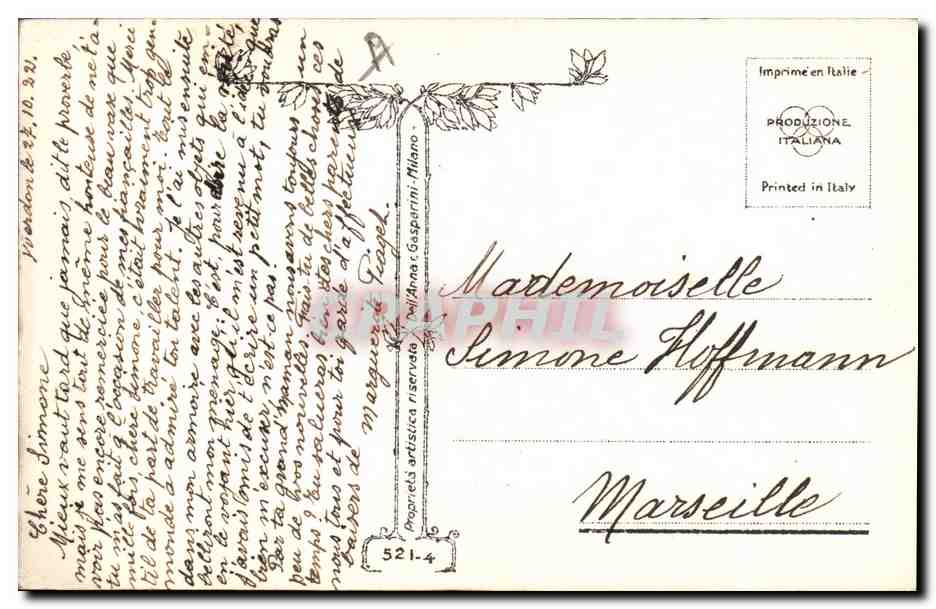 Yverdon le 27.10.22.
Chère Simone
Mieux vaut tard que jamais, dit le proverbe
mais je me sens tout de même honteuse de ne t'a-
voir pas encore remerciée pour le beau vase que
tu m'as fait à l'occasion de mes fiançailles. Merci
mille fois chère Simone c'était vraiment trop gen-
til de ta part de travailler pour moi. Tout le
monde a admiré ton talent. Je l'ai mis ensuite
dans mon armoire avec les autres objets qui em-
belliront mon ménage; c'est, pour dire la vérité
en le voyant hier qu'il m'est venu à l'idée que
j'avais omis de t'écrire un petit mot, tu voudras
bien m'excuser n'est ce pas!
Par ta grand'maman nous avons toujours un
peu de vos nouvelles, fais tu de belles choses ces
temps? Tu salueras bien tes chers parents de
nous tous et pour toi garde d'affectueux
baisers de
Marguerite Piaget.
A
Proprietà artistica riservata Dell'Anna e Gasparini - Milano -
521-4
Imprimé en Italie
PRODUZIONE
ITALIANA
Printed in Italy
Mademoiselle
Simone Hoffmann
Marseille
DELCAMPHIL